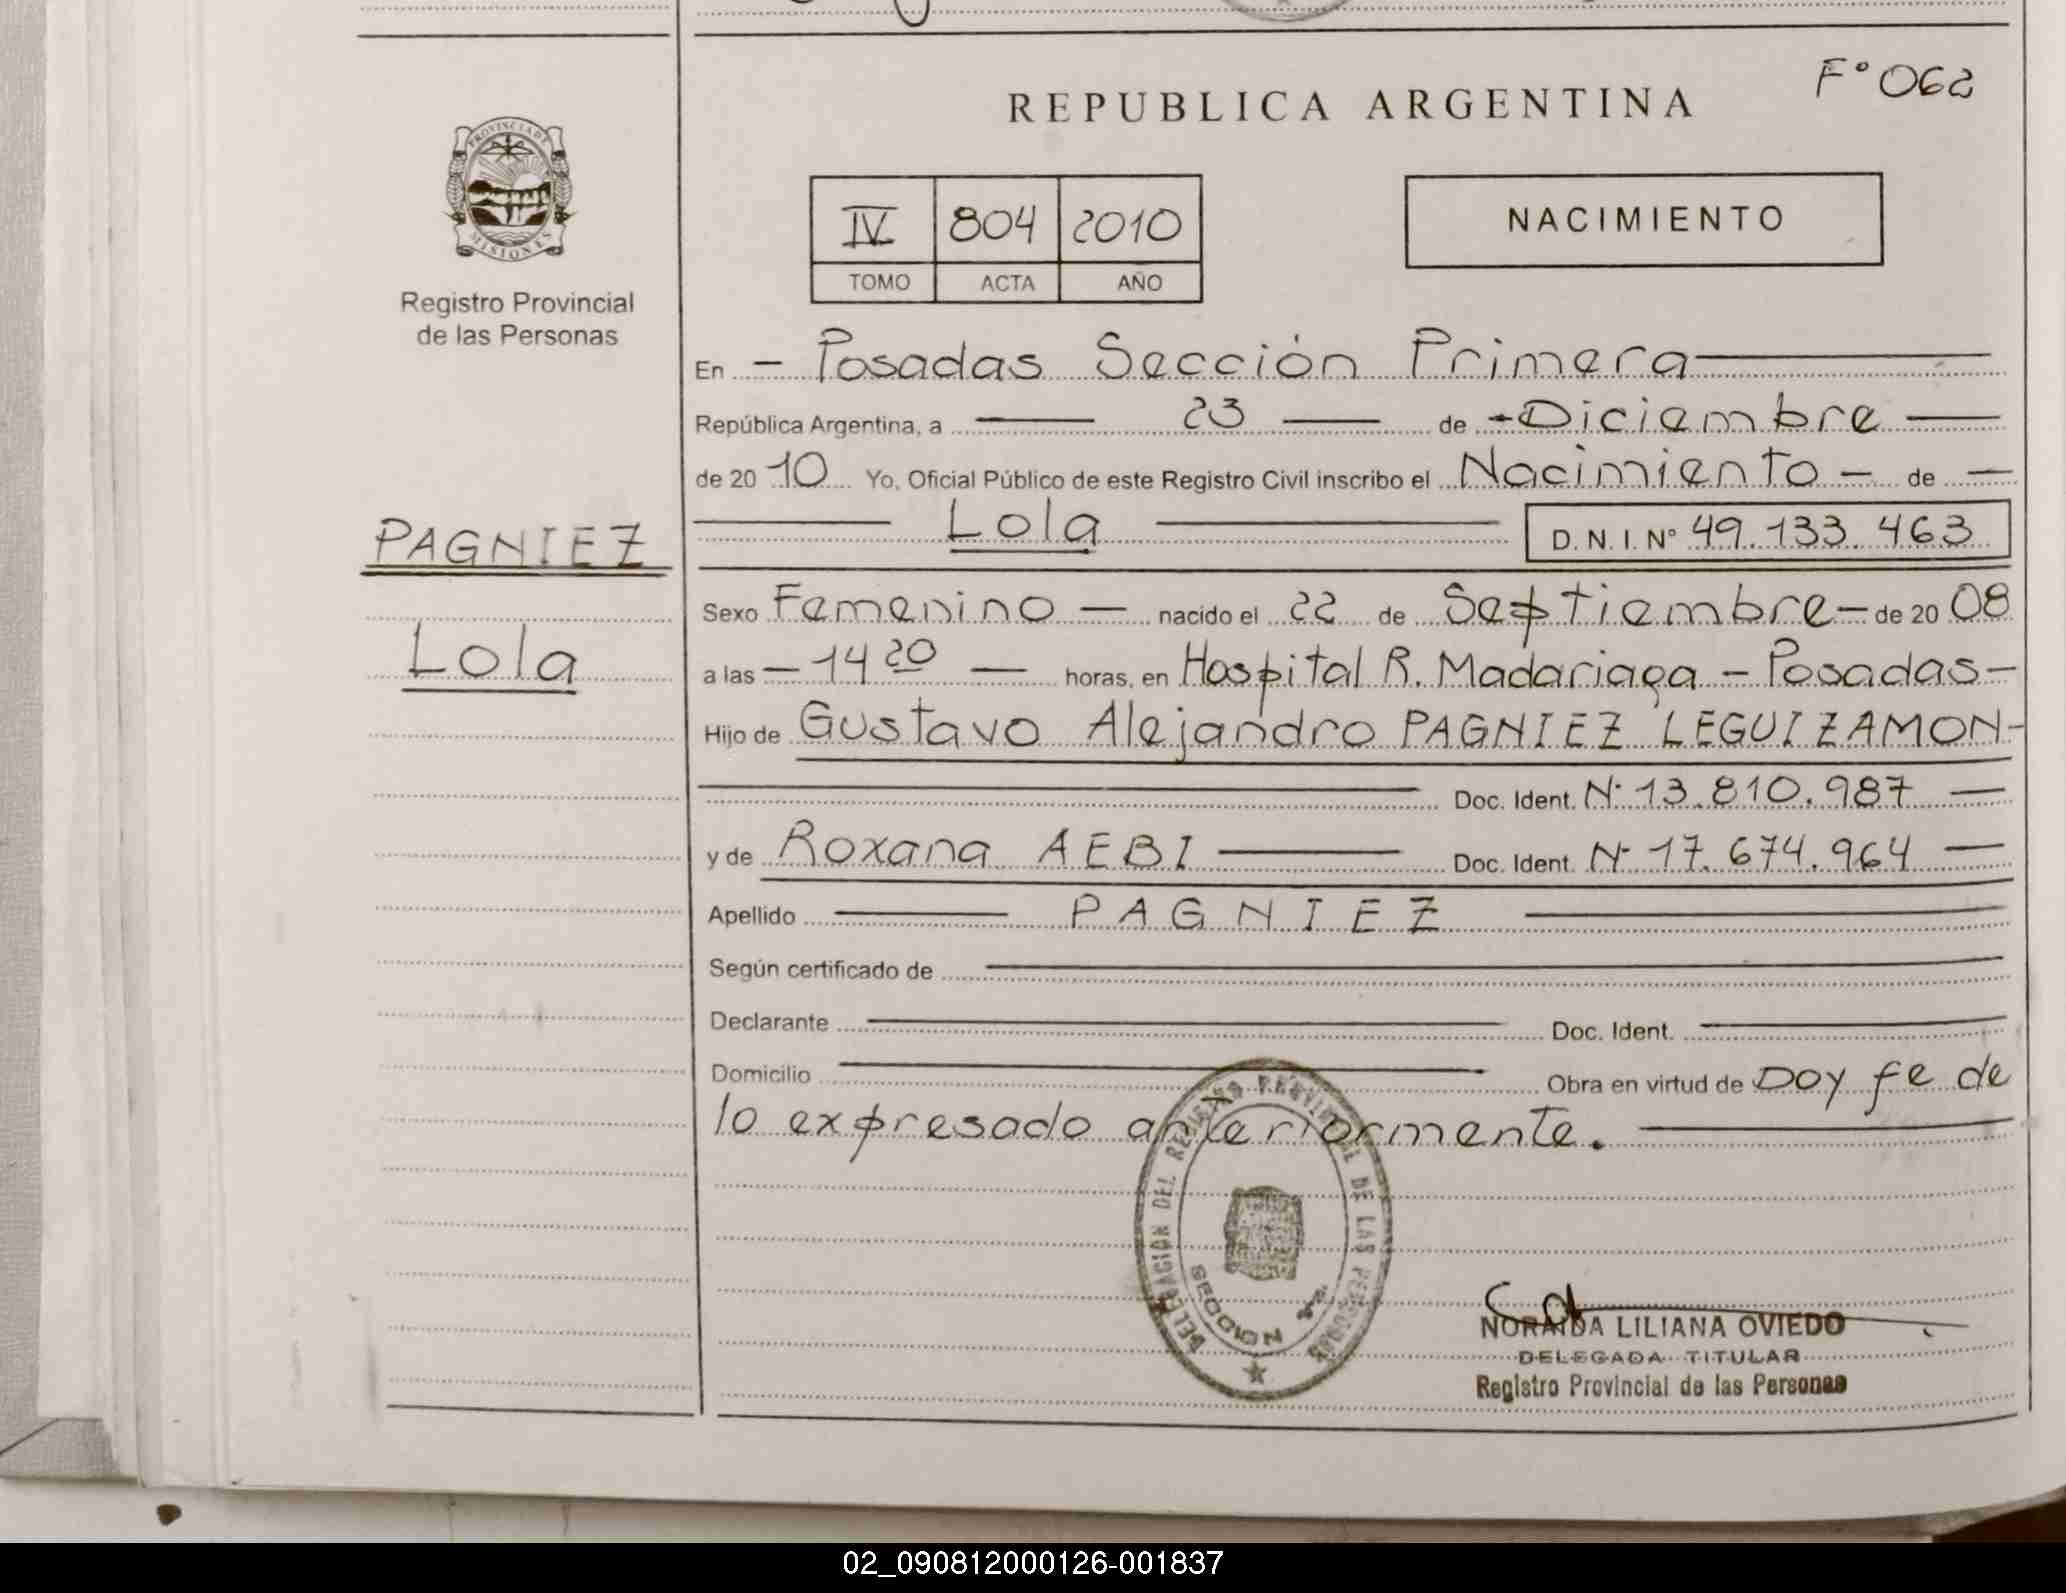 F° 062
REPUBLICA ARGENTINA
PROVINCIA DE
MISIONES
Registro Provincial
de las Personas
IV 804 2010
TOMO ACTA AÑO
NACIMIENTO
En - Posadas Sección Primera
República Argentina, a 23 de - Diciembre
de 20 10 Yo, Oficial Público de este Registro Civil inscribo el Nacimiento - de
Lola D. N. I. N° 49.133.463
PAGNIEZ
Lola
Sexo Femenino - nacido el 22 de Septiembre - de 20 08
a las - 14 20 - horas, en Hospital R. Madariaga - Posadas -
Hijo de Gustavo Alejandro PAGNIEZ LEGUIZAMON -
Doc. Ident. N· 13.810.987
y de Roxana AEBI Doc. Ident. N· 17.674.964
Apellido PAGNIEZ
Según certificado de
Declarante Doc. Ident.
Domicilio Obra en virtud de Doy fe de
lo expresado anteriormente.
DELEGACION DEL REGISTRO PROVINCIAL DE LAS PERSONAS
SECCION 1ra.
NORAIDA LILIANA OVIEDO
DELEGADA TITULAR
Registro Provincial de las Personas
02_090812000126-001837